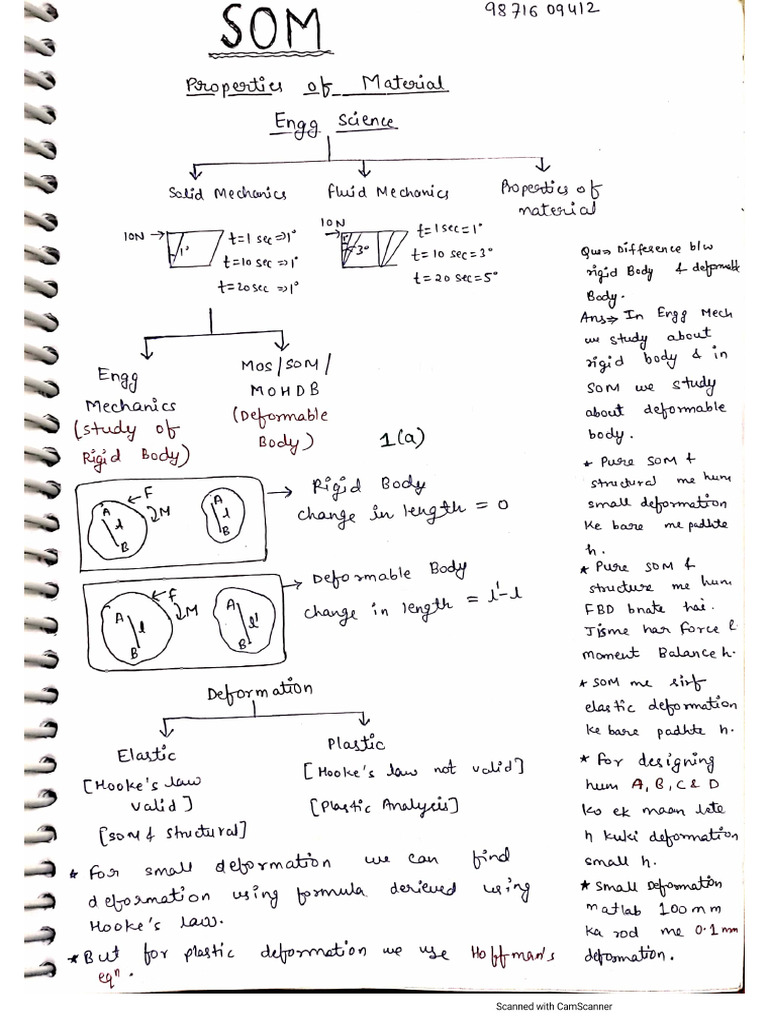 98716 09412
SOM
Properties of Material
Engg Science
Solid Mechanics
Fluid Mechanics
Properties of
material
10N
1°
t=1 sec⇒1°
t=10 sec⇒1°
t=20 sec⇒1°
10N
1°
3°
t=1 sec=1°
t=10 sec=3°
t=20 sec=5°
Engg
Mechanics
(Study of
Rigid Body)
MOS/SOM/
MOHDB
(Deformable
Body)
1(a)
A l B F M
A l B
→ Rigid Body
change in length = 0
A l B F M
A l' B
→ Deformable Body
change in length = l'-l
Deformation
Elastic
[Hooke's law
valid]
[SOM & structural]
Plastic
[Hooke's law not valid]
[Plastic Analysis]
* For small deformation we can find
deformation using formula derieved using
Hooke's law.
* But for plastic deformation we use Hoffman's
eqn.
Que⇒ Difference b/w
rigid Body & deformable
Body.
Ans⇒ In Engg Mech
we study about
rigid body & in
SOM we study
about deformable
body.
* Pure SOM &
structural me hum
small deformation
ke bare me padhte
h.
* Pure SOM &
structure me hum
FBD bnate hai.
Jisme har force &
moment Balance h.
* SOM me sirf
elastic deformation
ke bare padhte h.
* For designing
hum A, B, C & D
ko ek maan lete
h kuki deformation
small h.
* Small Deformation
matlab 100 mm
ka rod me 0.1 mm
deformation.
Scanned with CamScanner